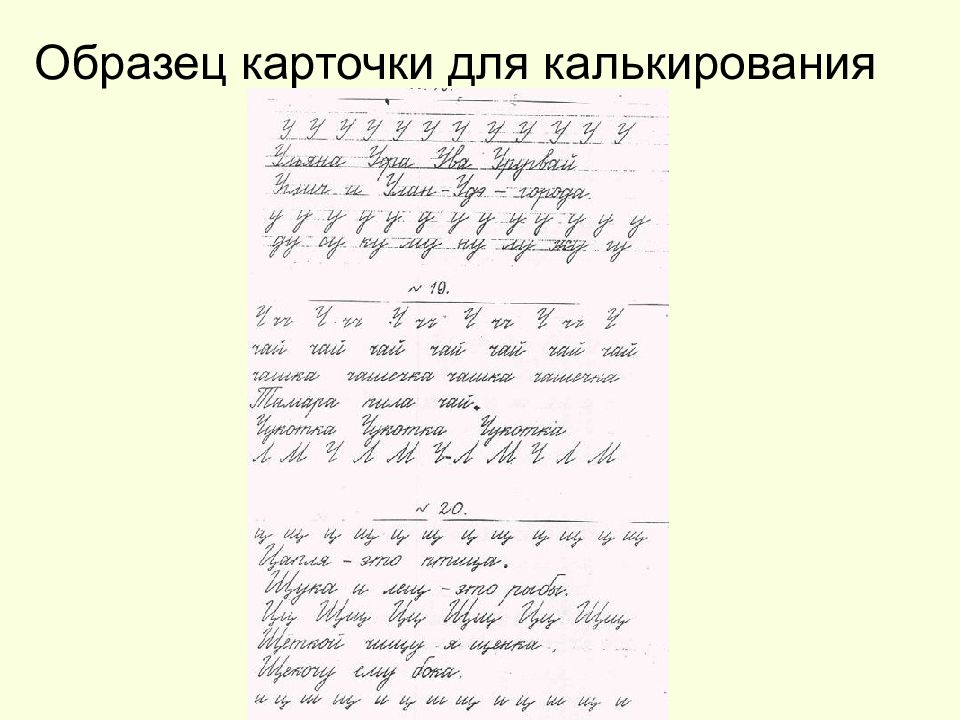 Образец карточки для калькирования
У У У У У У У У У У У У
Ульяна Уфа Ува Уругвай
и Улан-Удэ – города.
у у у у у у у у у у у у у у
ду су ку му ну лу жу гу
№ 19.
Ч чч Ч чч Ч чч Ч чч Ч чч Ч
чай чай чай чай чай чай чай
чашка чашечка чашка чашечка
Тамара пила чай.
Чукотка Чукотка Чукотка
Л М Ч Л М Ч Л М Ч Л М
№ 20.
ц щ ц щ ц щ ц щ ц щ ц щ
Цапля – это птица.
Щука и лещ – это рыбы.
Цц Щщ Цц Щщ Цц Щщ
Щёткой чищу я щенка,
Щекочу ему бока.
и ц ш щ и ц ш щ и ц ш щ и